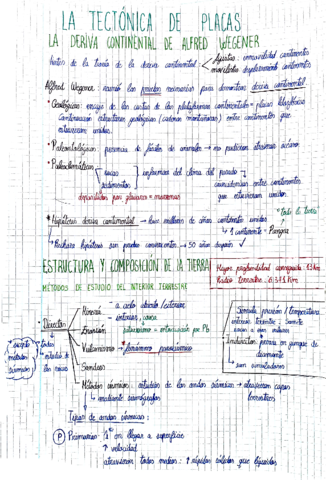 LA TECTÓNICA DE PLACAS
LA DERIVA CONTINENTAL DE ALFRED WEGENER
Antes de la teoría de la deriva continental
Fijistas: inmovilidad continentes
movilistas: desplazamiento continentes
Alfred Wegener: reunió las pruebas necesarias para demostrar deriva continental
* Geológicas: encaje de las costas de las plataformas continentales =
continuación estructuras geológicas (cadenas montañosas) entre continentes que
estuvieron unidos.
* Paleontológicas: presencia de fósiles de animales → no pudieron atravesar océano
* Paleoclimáticas
rocas
sedimentos
informan del clima del pasado
coincidencias entre continentes
que estuvieron unidos
depositados por glaciares = morrenas
"toda la tierra"
* Hipótesis deriva continental → hace millones de años continentes unidos
↳ 1 continente = Pangea
* Rechazo hipótesis sin pruebas convincentes → 50 años después ✓
ESTRUCTURA Y COMPOSICIÓN DE LA TIERRA
Mayor profundidad conseguida: 13 Km
Radio terrestre: 6.371 Km
MÉTODOS DE ESTUDIO DEL INTERIOR TERRESTRE
Directos
Minería
a cielo abierto / exterior
interior / mina
Erosión
Vulcanismo →
Sondeos
Métodos sísmicos: estudios de las ondas sísmicas → atraviesan capas
terrestres
↳ mediante sismógrafos
excepto
métodos
sísmicos
todos
estudio de
las rocas
presión / temperatura
interior terrestre
Indirectos
prensa en yunque de
diamante
↳ son simuladores
Tipos de ondas sísmicas:
P Primarias: 1ª en llegar a superficie
↑ velocidad
atraviesan todos medios: ↑ rápidas sólidos que líquidos